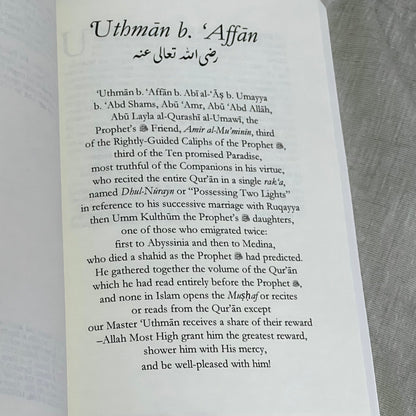 ʿUthmān b. ʿAffān
رضي الله تعالى عنه
ʿUthmān b. ʿAffān b. Abī al-ʿĀṣ b. Umayya
b. ʿAbd Shams, Abū ʿAmr, Abū ʿAbd Allāh,
Abū Layla al-Qurashī al-Umawī, the
Prophet’s ﷺ Friend, Amīr al-Mu’minīn, third
of the Rightly-Guided Caliphs of the Prophet ﷺ,
third of the Ten promised Paradise,
most truthful of the Companions in his virtue,
who recited the entire Qur’ān in a single rak‘a,
named Dhul-Nūrayn or “Possessing Two Lights”
in reference to his successive marriage with Ruqayya
then Umm Kulthūm the Prophet’s ﷺ daughters,
one of those who emigrated twice:
first to Abyssinia and then to Medina,
who died a shahid as the Prophet ﷺ had predicted.
He gathered together the volume of the Qur’ān
which he had read entirely before the Prophet ﷺ,
and none in Islam opens the Muṣḥaf or recites
or reads from the Qur’ān except
our Master ʿUthmān receives a share of their reward
–Allah Most High grant him the greatest reward,
shower him with His mercy,
and be well-pleased with him!